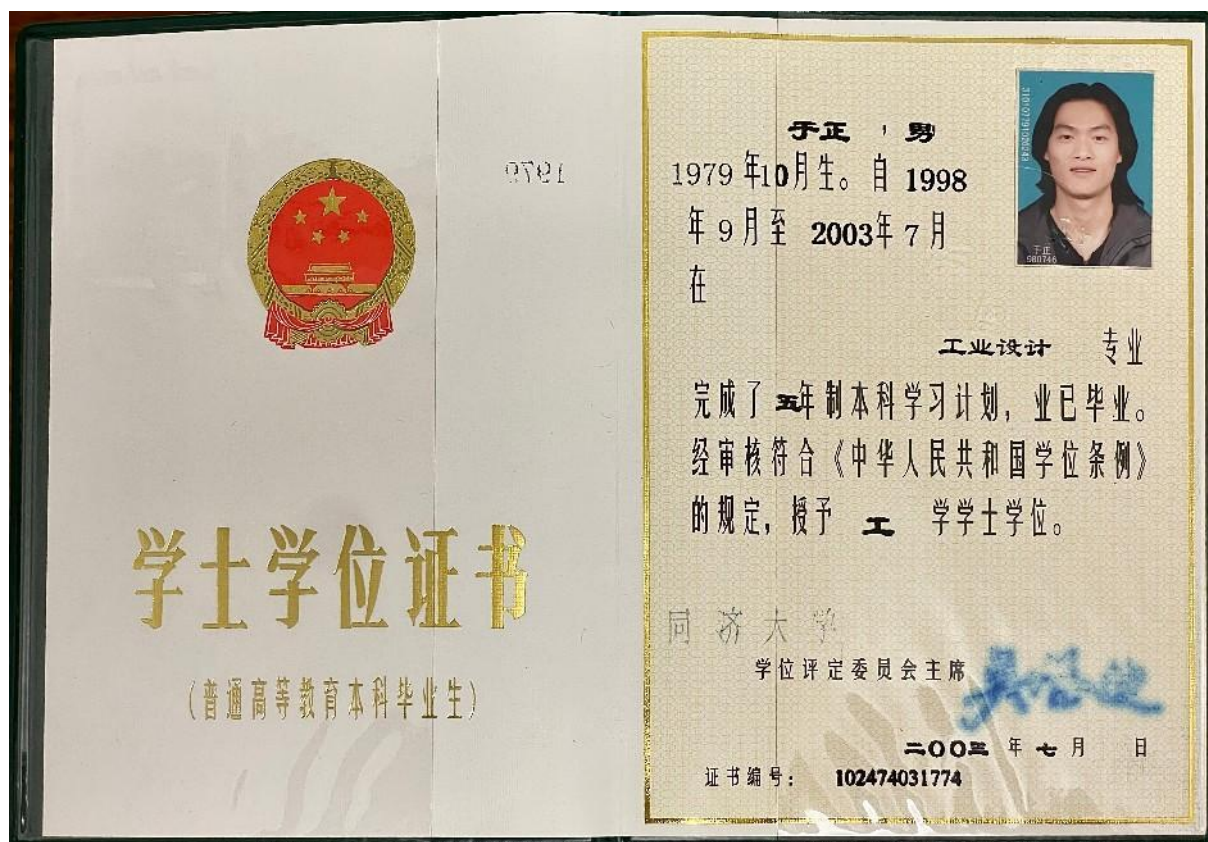 学士学位证书
(普通高等教育本科毕业生)
于正 , 男
1979年10月生。自 1998
年9月至 2003年7月
在
工业设计 专业
完成了五年制本科学习计划, 业已毕业。
经审核符合《中华人民共和国学位条例》
的规定, 授予 工 学学士学位。
同济大学
学位评定委员会主席
二〇〇三 年 七 月 日
证书编号: 102474031774
于正
980746